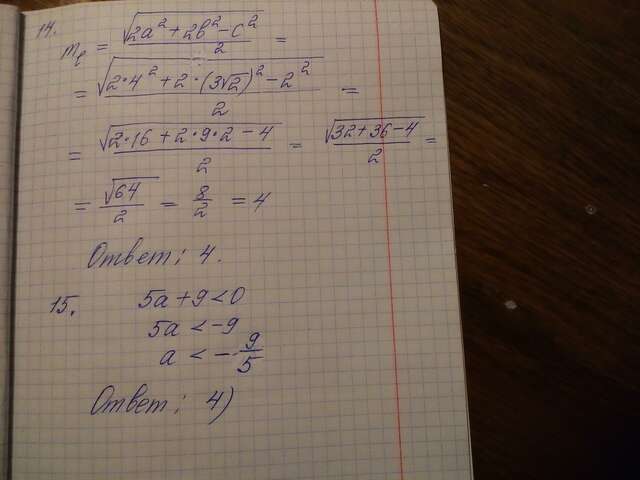 14. m_c = √(2a² + 2b² - c²)/2 =
= √(2·4² + 2·(3√2)² - 2²)/2 =
= √(2·16 + 2·9·2 - 4)/2 = √(32 + 36 - 4)/2 =
= √64/2 = 8/2 = 4
Ответ: 4.
15. 5a + 9 < 0
5a < -9
a < -9/5
Ответ: 4)